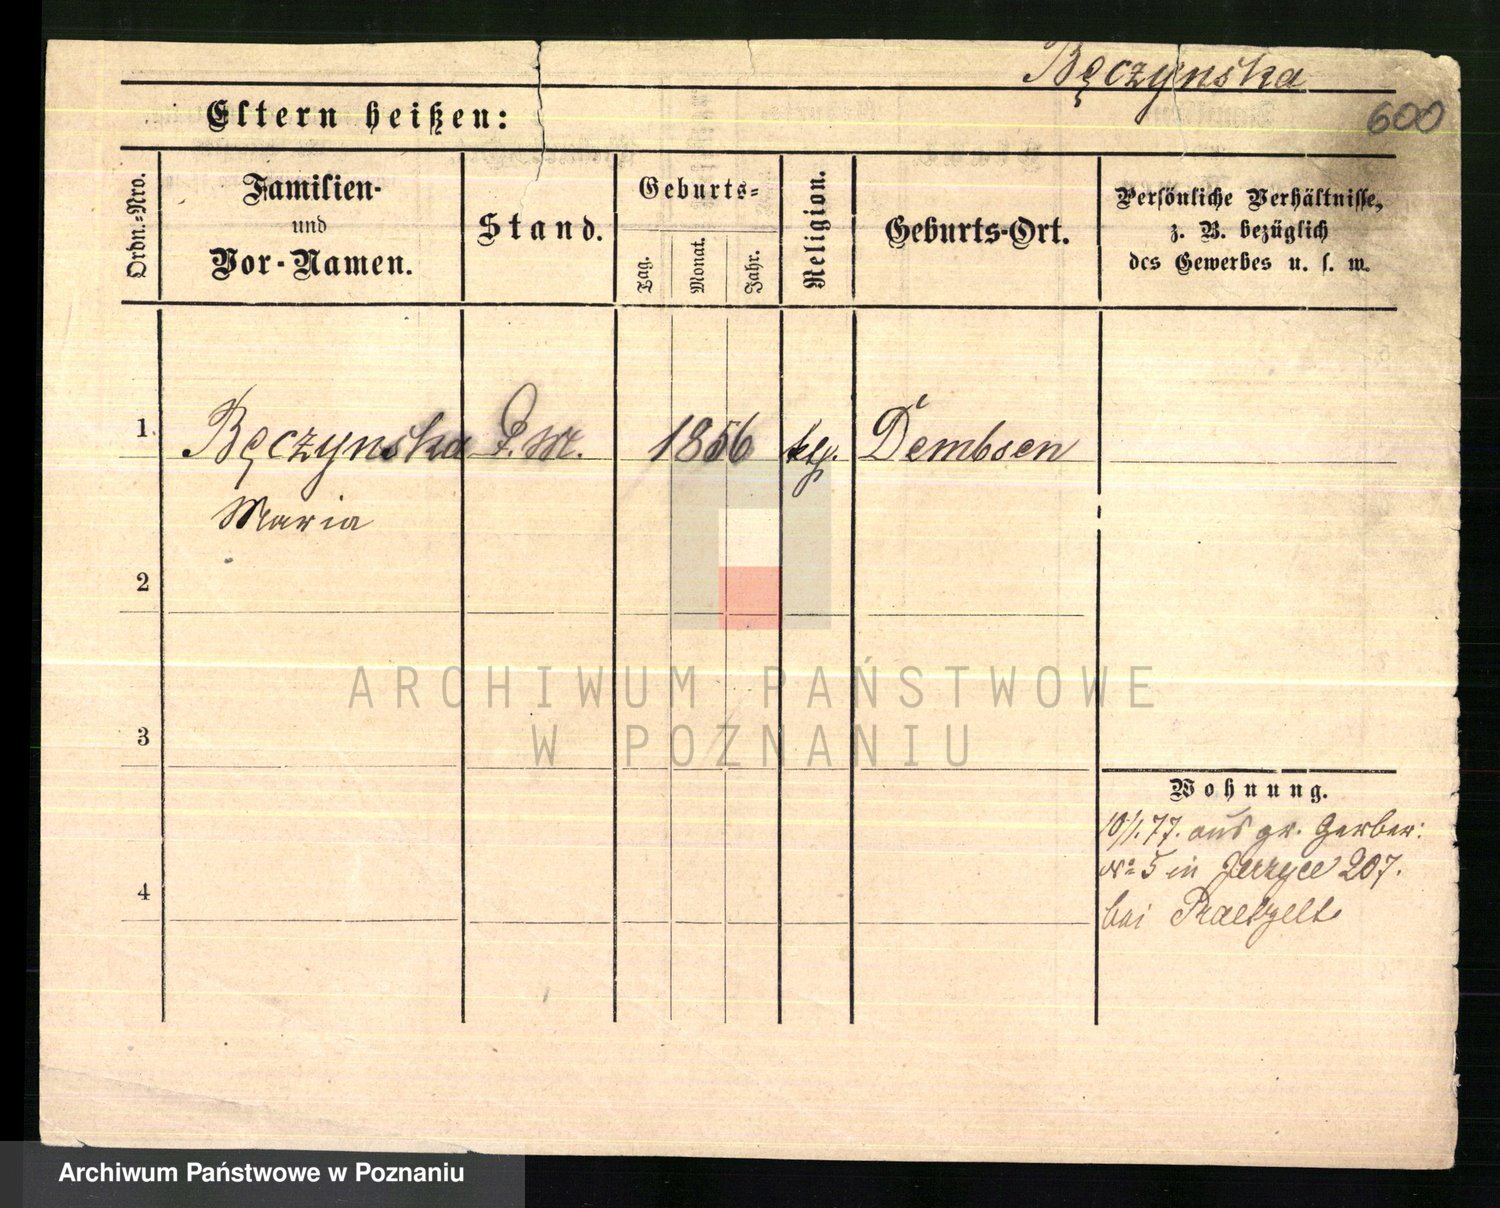 Bęczynska
600
Eltern heißen:
Ordn.-Nro.
Familien-
und
Vor-Namen.
Stand.
Geburts-
Tag.
Monat.
Jahr.
Religion.
Geburts-Ort.
Persönliche Verhältnisse,
z. B. bezüglich
des Gewerbes u. s. w.
1 Bęczynska D. M. 1856 klg. Dembsen
Maria
2
3
4
Wohnung.
10/1.77. aus gr. Gerber:
No 5 in Jerzyce 207.
bei
ARCHIWUM PAŃSTWOWE
W POZNANIU
Archiwum Państwowe w Poznaniu